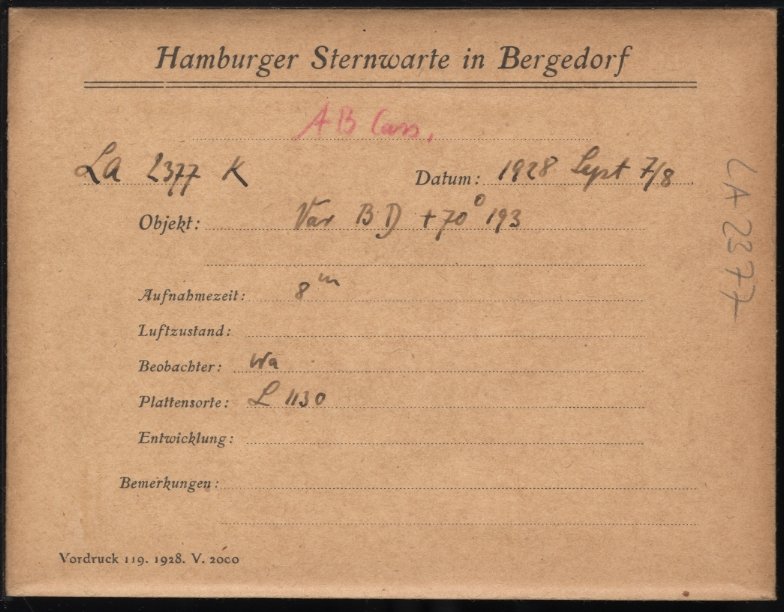 Hamburger Sternwarte in Bergedorf
AB Cass.
LA 2377 K Datum: 1928 Sept 7/8
Objekt: Var BD +70° 193
Aufnahmezeit: 8m
Luftzustand:
Beobachter: Wa
Plattensorte: L 1130
Entwicklung:
Bemerkungen:
Vordruck 119. 1928. V. 2000
LA 2377